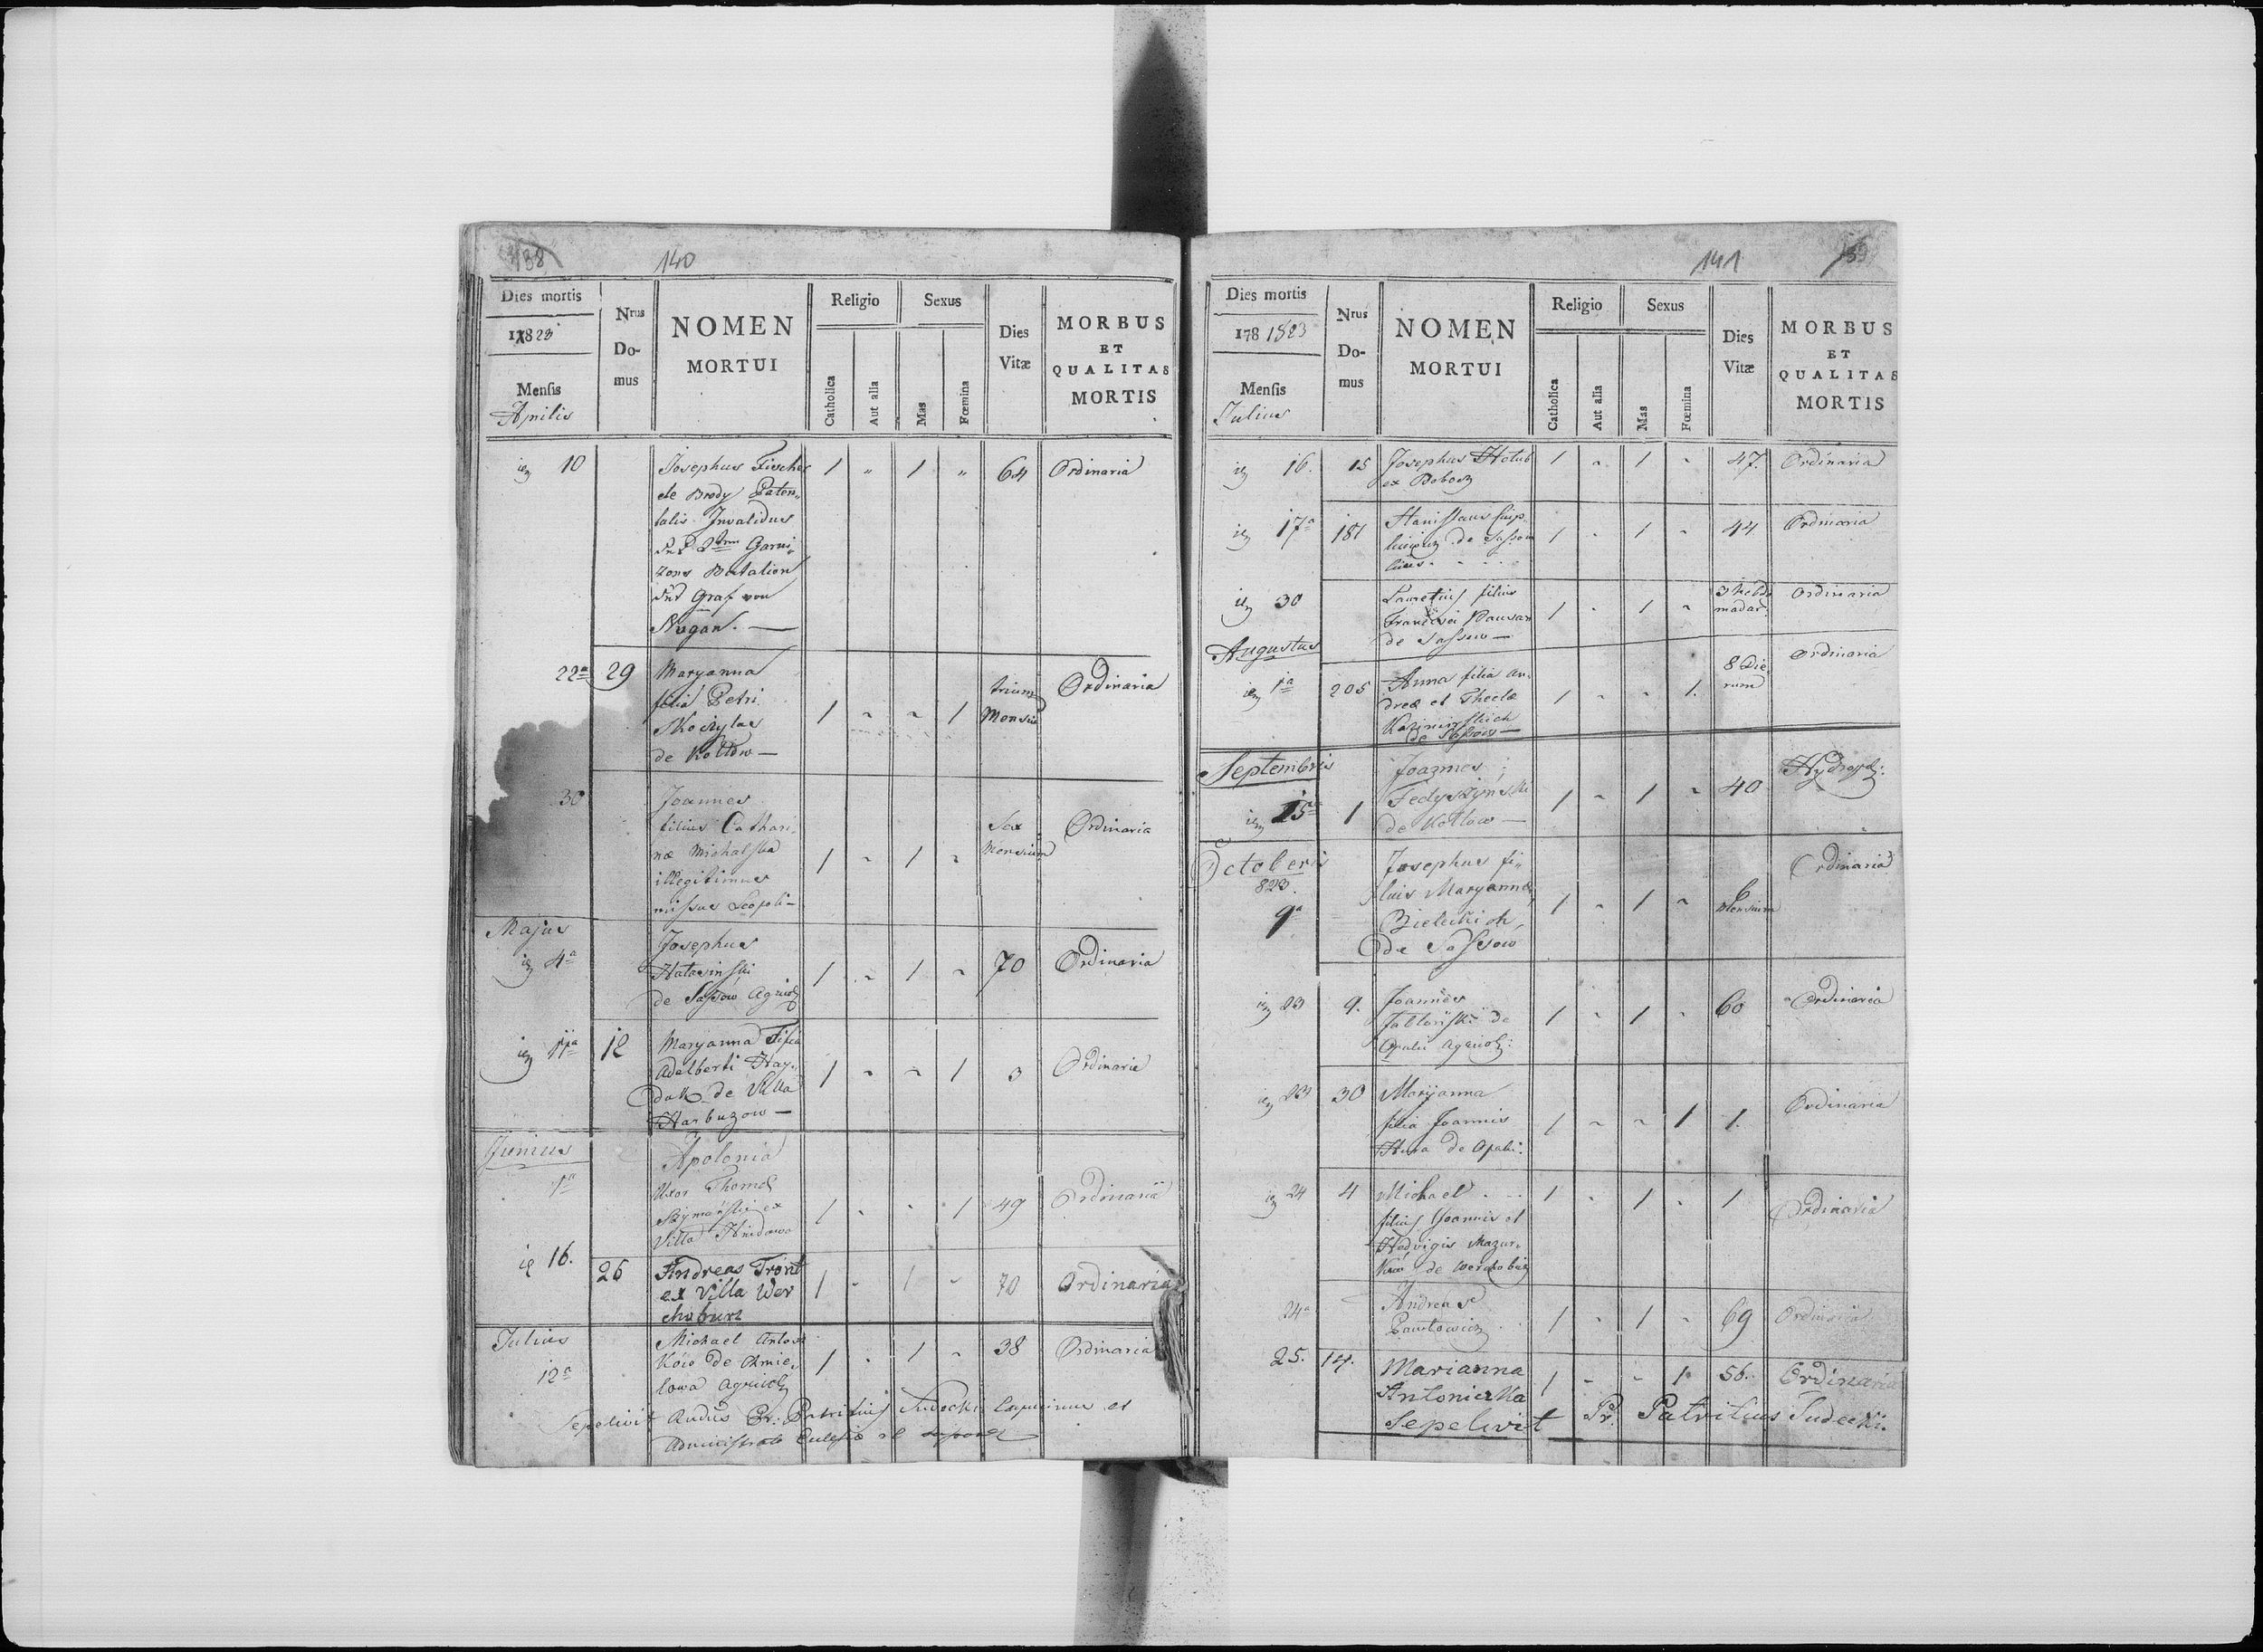 138
140
Dies mortis
1823
Mensis
Aprilis
Nrus
Do-
mus
NOMEN
MORTUI
Religio
Catholica
Aut alia
Sexus
Mas
Fœmina
Dies
Vitæ
MORBUS
ET
QUALITAS
MORTIS
10
Josephus Fischer
de Brody Paten„
talis Invalidus
Garni„
zons Batalion
Graf von
Nugan. —
1 „ 1 „ 64 Ordinaria
22a 29
Maryanna
filia Petri
de Kołtow —
1 - - 1
trium
Mensiu
Ordinaria
30
Joannes
filius Cathari
næ Michalska
illegitimus
missus Leopoli —
1 - 1 -
Sex
Mensium
Ordinaria
Majus
4a
Josephus
de Sassow Agricol
1 - 1 - 70 Ordinaria
12
Maryanna Filia
Adelberti Hay„
duk de Villa
Harbuzow —
1 - - 1 3 Ordinaria
Junius
Apolonia
Uxor Thomæ
Szymański ex
Villa Hnidawa
1 - - 1 49 Ordinaria
16. 26
Andreas Tront
ex Villa Wer
chobuz
1 - 1 - 70 Ordinaria
Julius
12a
Michael Antos
ków de
łowa Agricol
1 - 1 - 38 Ordinaria
Sepelivit Pr: Patritius Sudecki et
141
Dies mortis
178 1823
Mensis
Julius
Nrus
Do-
mus
NOMEN
MORTUI
Religio
Catholica
Aut alia
Sexus
Mas
Fœmina
Dies
Vitæ
MORBUS
ET
QUALITAS
MORTIS
16. 15
Josephus Hołub
ex
1 - 1 - 47. Ordinaria
17a 181
Stanislaus
de Sassow
1 - 1 - 44 Ordinaria
30
filius
Francisci
de Sassow —
1 - 1 -
3 hebdo
madar.
Ordinaria
Augustus
1a 205
Anna filia An„
dreæ et Theclæ
Kazimirskich
de Sassow —
1 - - 1.
8 Die
rum
Ordinaria
Septembris
15a 1
Joannes
Fedyszynski
de Kołtow —
1 - 1 - 40 Hydrop:
Octobris
823.
9a
Josephus fi„
lius Maryannæ
Bieleckich
de Sassow
1 - 1 -
6
Mensium
Ordinaria
23 9.
Joannes
Jabłoński de
Opaki Agricol:
1 - 1 - 60 Ordinaria
23 30
Maryanna
filia Joannis
de Opaki:
1 - - 1 1. Ordinaria
24 4
Michael
filius Joannis et
Hedvigis Mazur„
ków de Werchobuz
1 - 1 - 1 Ordinaria
24a
Andreas
Pawłowicz
1 - 1 - 69 Ordinaria
25. 14.
Marianna
Antoniczka
1 - - 1. 56. Ordinaria
Sepelivit Pr. Patritius Sudecki.